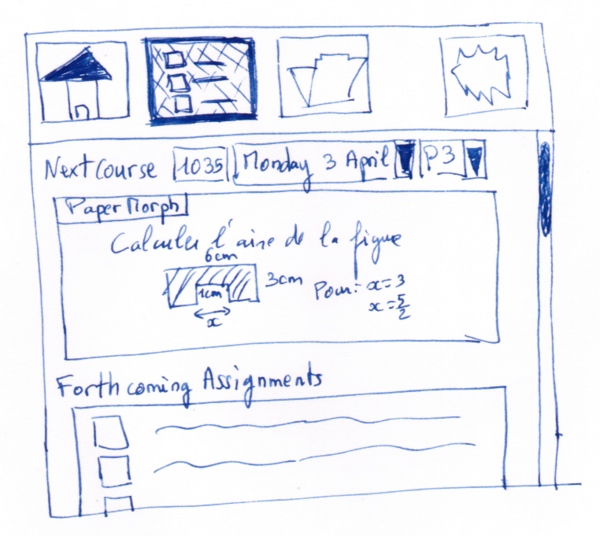 Next Course 1035 Monday 3 April P3
PaperMorph
Calculer l'aire de la figure
6cm
1cm
3cm
x
Pour: x=3
x=5/2
Forthcoming Assignments